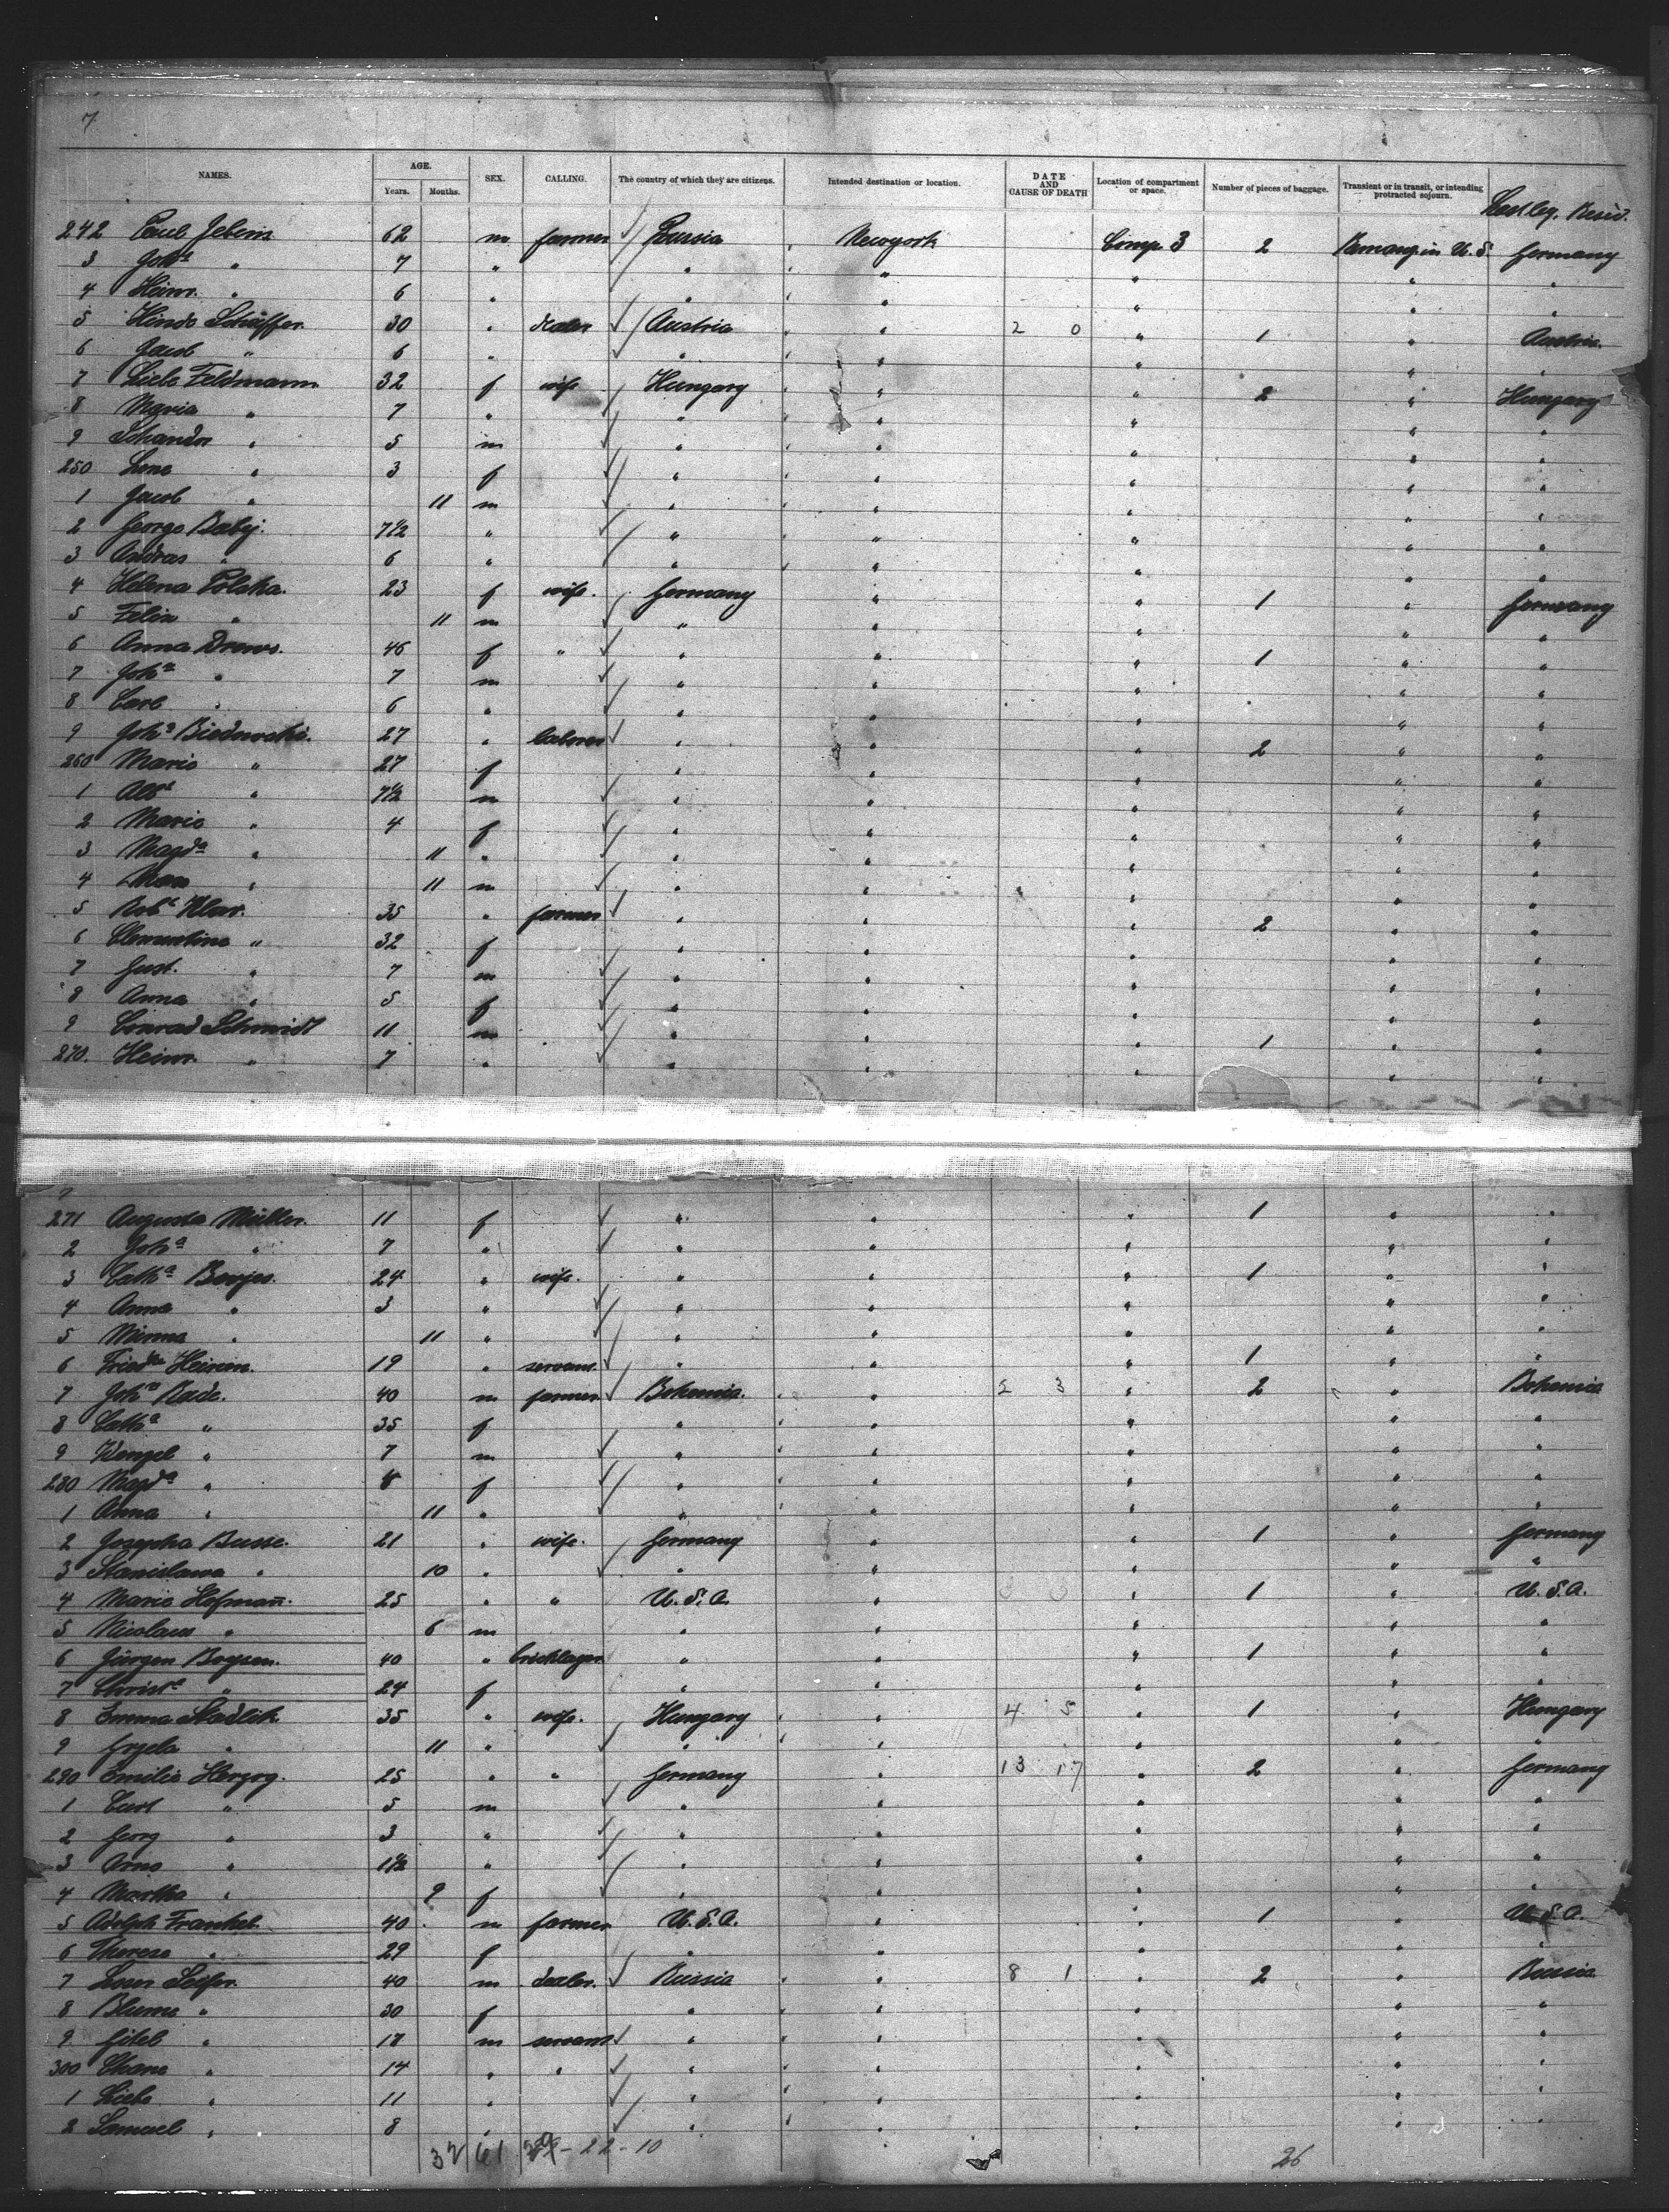 7
NAMES. AGE. Years. Months. SEX. CALLING. The country of which they are citizens. Intended destination or location. DATE AND CAUSE OF DEATH Location of compartment or space. Number of pieces of baggage. Transient or in transit, or intending protracted sojourn. Last leg. Resid.
242 Paul Jebens 62 m farmer Russia Newyork Comp. 3 2 Remang in U.S. Germany
3 Joha " 7 " " " " " "
4 Heinr. " 6 " " " " " "
5 Hinde Schäffer 30 " dealer Austria " 2 0 " 1 " Austria
6 Jacob " 6 " " " " " "
7 Liebe Feldmann 32 f wife Hungary " " 2 " Hungary
8 Maria " 7 " " " " " "
9 Schandor " 5 m " " " " "
250 Lena " 3 f " " " " "
1 Jacob " 11 m " " " " "
2 George Baby. 7½ " " " " " "
3 Andras " 6 " " " " " "
4 Helena Polska. 23 f wife. Germany " " 1 " Germany
5 Felix " 11 m " " " " "
6 Anna Drews. 46 f " " " " 1 " "
7 Joha " 7 m " " " " "
8 Carl " 6 " " " " " "
9 Joha 27 " laborer " " " 2 " "
260 Marie " 27 f " " " " "
1 Albt " 7½ m " " " " "
2 Marie " 4 f " " " " "
3 Magda " 11 " " " " " "
4 Max " 11 m " " " " "
5 Robt Klar. 35 " farmer " " " 2 " "
6 Clementine " 32 f " " " " "
7 Gust. " 7 m " " " " "
8 Anna " 5 f " " " " "
9 Conrad Schmidt 11 m " " " 1 " "
270. Heinr. " 7 " " " " " "
271 Augusta Müller. 11 f " " " 1 " "
2 Joha " 7 " " " " " "
3 Catha 24 " wife. " " " 1 " "
4 Anna " 3 " " " " " "
5 Minna " 11 " " " " " "
6 19 " servant " " " 1 " "
7 Johs Rade. 40 m farmer Bohemia. " 2 3 " 2 " Bohemia
8 Catha " 35 f " " " " "
9 Wenzel " 7 m " " " " "
280 Magda " f " " " " "
1 Anna " 11 " " " " " "
2 Josepha Busse. 21 " wife. Germany " " 1 " Germany
3 Stanislawa " 10 " " " " " "
4 Marie Hofmann. 25 " " U.S.A. " " 1 " U.S.A.
5 Nicolaus " 6 m " " " " "
6 Jürgen Boysen. 40 " bricklayer " " " 1 " "
7 Christe " 24 f " " " " "
8 Emma 35 " wife. Hungary " 4 5 " 1 " Hungary
9 " 11 " " " " " "
290 Emilie Herzog. 25 " " Germany " 13 17 " 2 " Germany
1 Carl " 5 m " " " " "
2 Georg " 3 " " " " " "
3 Arno " 1½ " " " " " "
4 Martha " 9 f " " " " "
5 Adolph Frankel 40 m farmer U.S.A. " " 1 " U.S.A.
6 Therese " 29 f " " " " "
7 40 m dealer. Russia " 8 1 " 2 " Russia
8 Blume " 30 f " " " " "
9 Gitel " 18 m servant " " " " "
300 Chane " 14 " " " " " " "
1 Liebe " 11 " " " " " "
2 Samuel " 8 " " " " " "
32 61 - 22 - 10 26